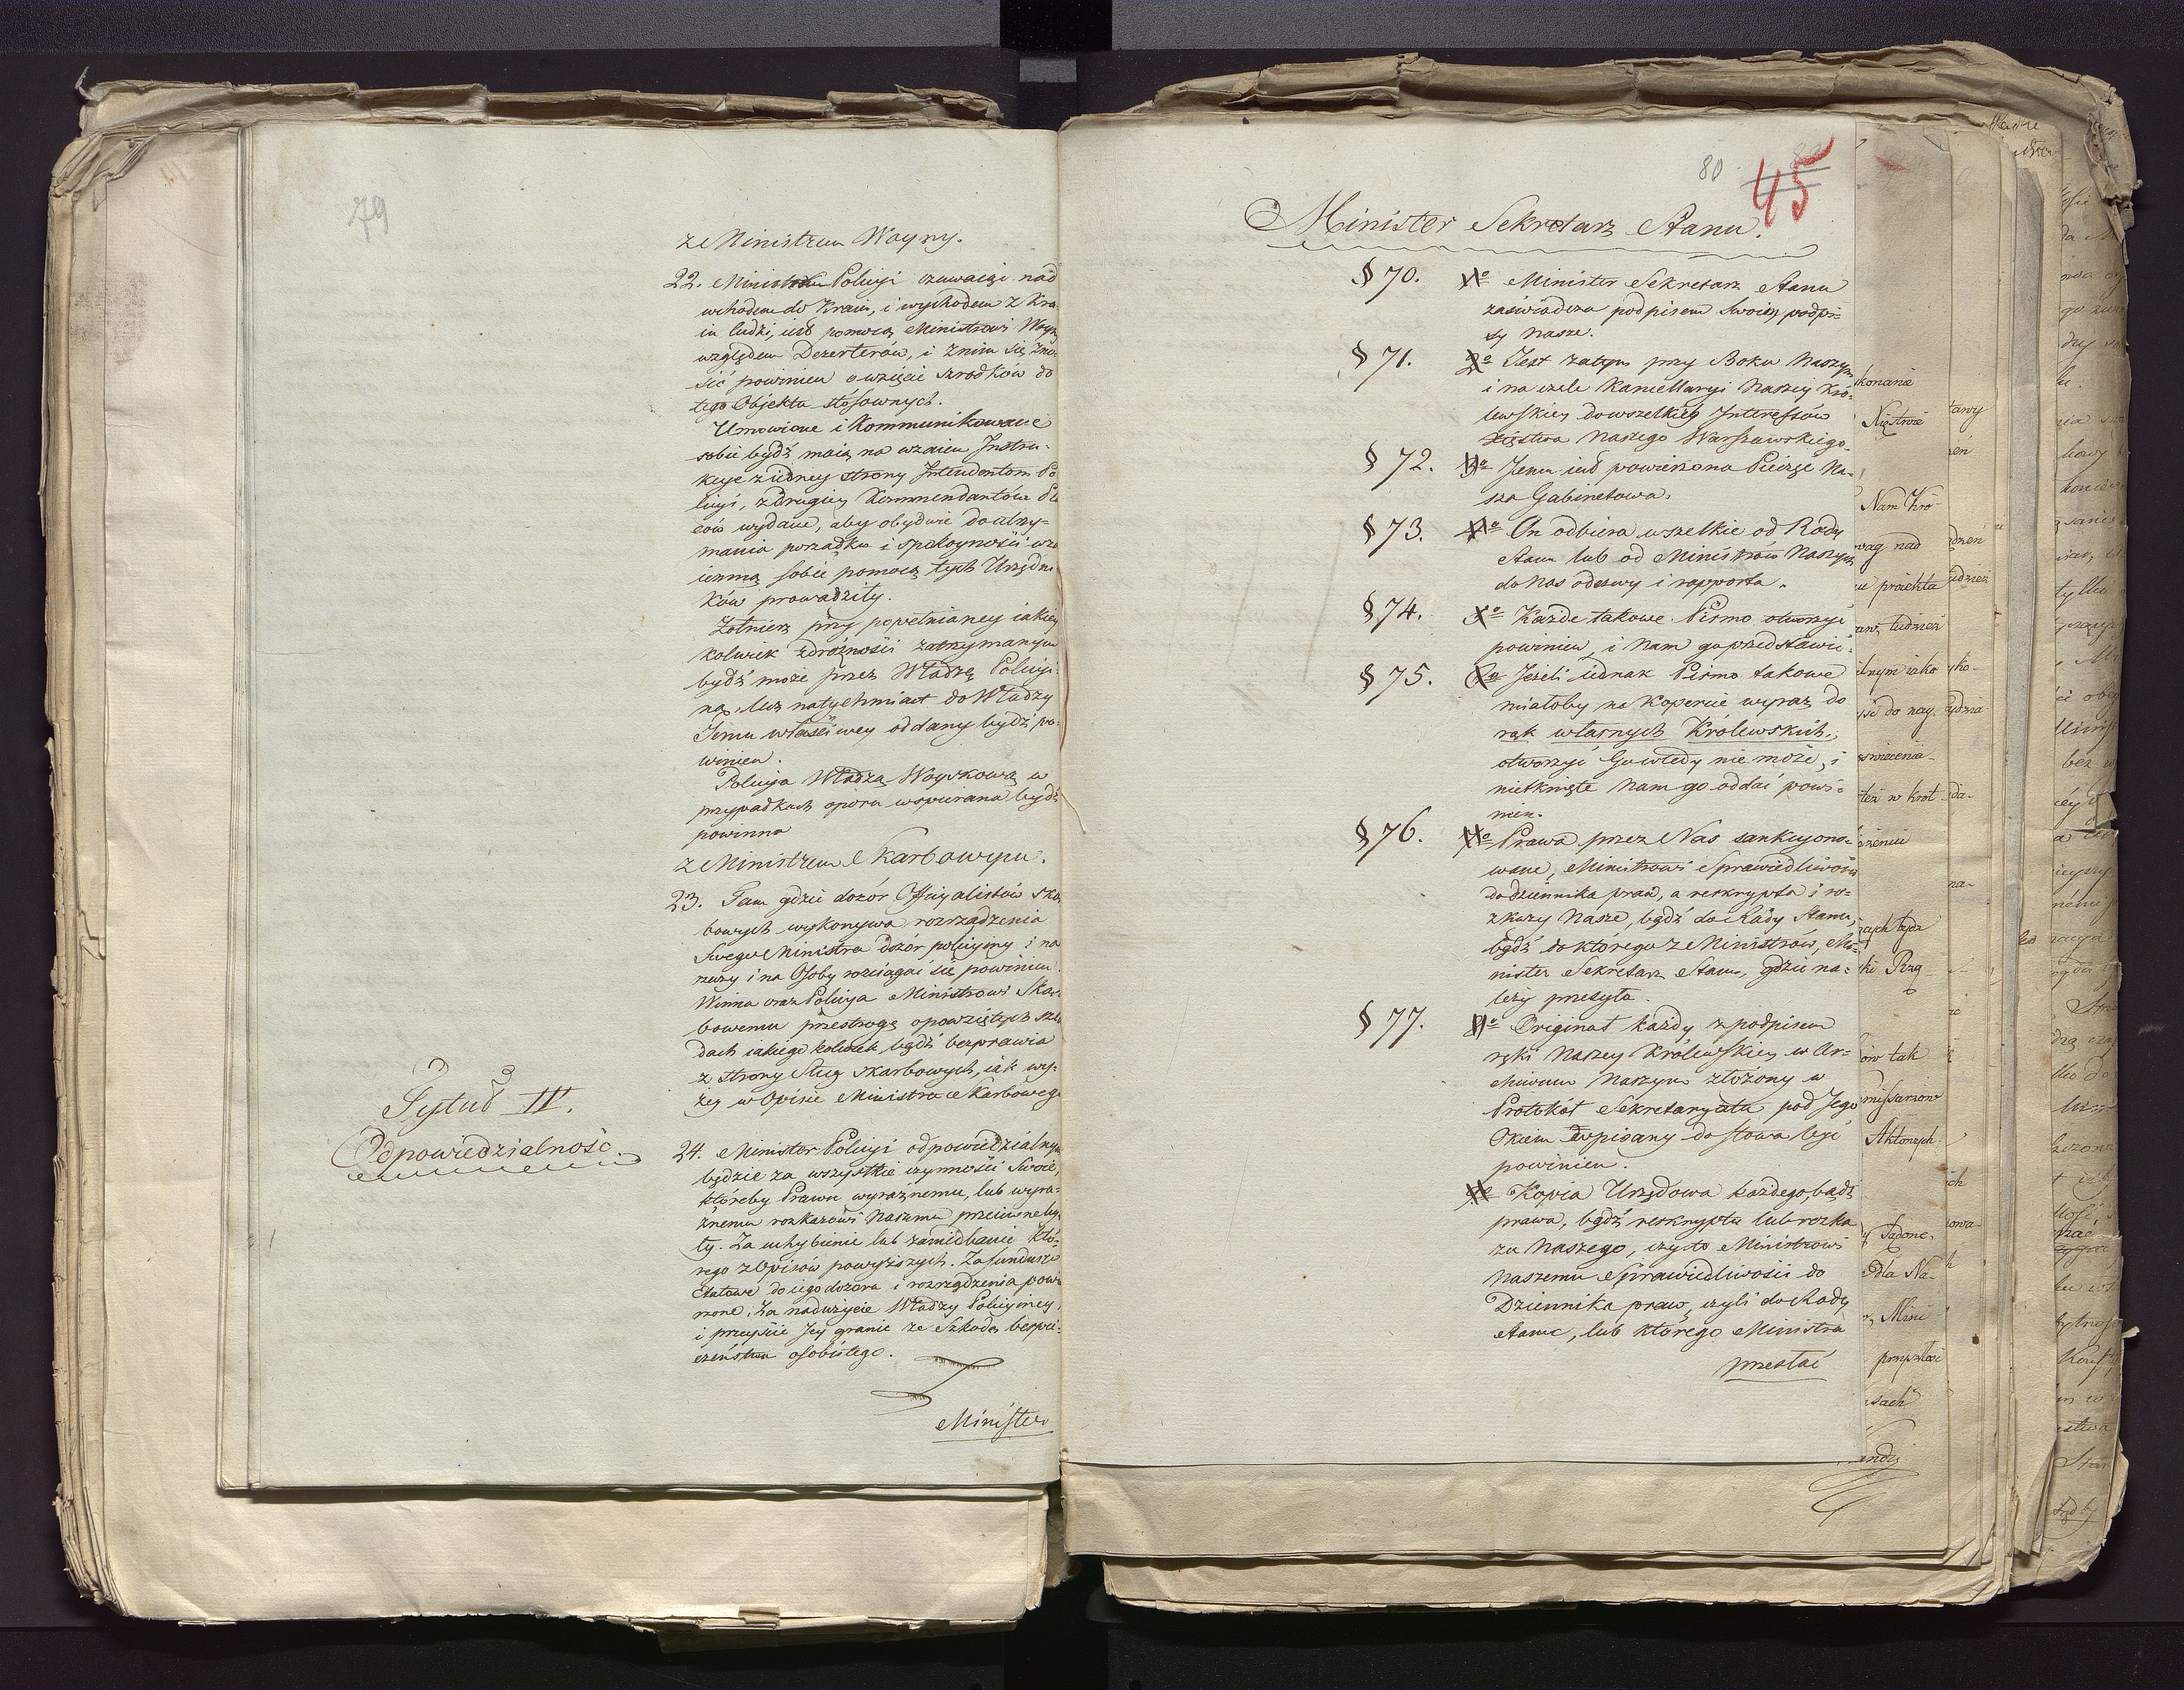 79
z Ministrem Woyny.
22. Minister Policyi czuwaiąc nad
wchodem do Kraiu, i wychodem z Kra
iu ludzi, iest pomocą Ministrowi Woyn
względem Dezerterów, i z nim się zno-
sić powinien o wzięcie szrodków do
tego Objektu stósownych.
Umowione i kommunikowane
sobie bydź maią na wzaiem Instru-
kcye z iedney strony Intendentom Po
licyi, z drugiey Kommendantów Pla
ców wydane, aby obydwie do utrzy-
mania porządku i spokoyności wza
iemną sobie pomocą tych Urzędni
ków prowadziły.
Żołnierz przy popełnianey iakiey
kolwiek zdrożności zatrzymanym
bydź może przez Władzę Policyi-
ną, lecz natychmiast do Władzy
Jemu właściwey oddany bydź po-
winien.
Policya Władzą Woyskową w
przypadkach oporu wspierana bydź
powinna
z Ministrem Skarbowym.
23. Tam gdzie dozór Officyalistów skar
bowych wykonywa rozrządzenia
Swego Ministra dozór policyiny i na
rzeczy i na Osoby rozciągać się powinien.
Winna oraz Policya Ministrowi Skar
bowemu przestrogę o powziętych szla
dach iakiego kolwiek bądź bezprawia
z strony Sług skarbowych, iak wy-
żey w Opisie Ministra Skarbowego
Tytuł IV.
Odpowiedzialność.
24. Minister Policyi odpowiedzialnym
będzie za wszystkie czynności Swoie,
któreby Prawu wyraźnemu, lub wyra-
źnemu rozkazowi Naszemu przeciwne by
ły. Za uchybienie lub zaniedbanie któ-
rego z Opisów powyższych. Za fundusze
Etatowe do iego dozoru i rozrządzenia powie
rzone. Za nadużycie Władzy Policyiney,
i przeyście Jey granic ze Szkodą bezpie-
czeństwa osobistego.
Minister
80
45
Minister Sekretarz Stanu.
§ 70. 1o Minister Sekretarz Stanu
zaświadcza podpisem Swoiem podpi-
sy Nasze.
§ 71. 2o Jest zatym przy Boku Naszym
i na czele Kancellaryi Naszey Kró-
lewskiey do wszelkich Interessów
Xięstwa Naszego Warszawskiego.
§ 72. 3o Jemu iest powierzona Pieczęć Na-
sza Gabinetowa.
§ 73. 4o On odbiera wszelkie od Rady
Stanu lub od Ministrów Naszych
do Nas odezwy i rapporta.
§ 74. 5o Każde takowe Pismo otworzyć
powinien, i Nam go przedstawić.
§ 75. 6o Jeżeli iednak Pismo takowe
miałoby na Kopercie wyraz do
rąk własnych Królewskich,
otworzyć Go wtedy nie może, i
nietknięte Nam go oddać powi-
nien.
§ 76. 7o Prawa przez Nas sankcyono-
wane, Ministrowi Sprawiedliwości
do dziennika praw, a reskrypta i ro-
zkazy Nasze, bądź do Rady Stanu,
bądź do którego z Ministrów, Mi-
nister Sekretarz Stanu, gdzie na-
leży przesyła.
§ 77. 8o Originał każdy z podpisem
ręki Naszey Królewskiey w Ar-
chiwum Naszym złożony w
Protokół Sekretaryatu pod Jego
Okiem wpisany do słowa bydź
powinien.
9o Kopia Urzędowa każdego, bądź
prawa, bądź reskryptu lub rozka
zu Naszego, czy to Ministrowi
Naszemu Sprawiedliwości do
Dziennika praw, czyli do Rady
Stanu, lub którego Ministra
przesłać